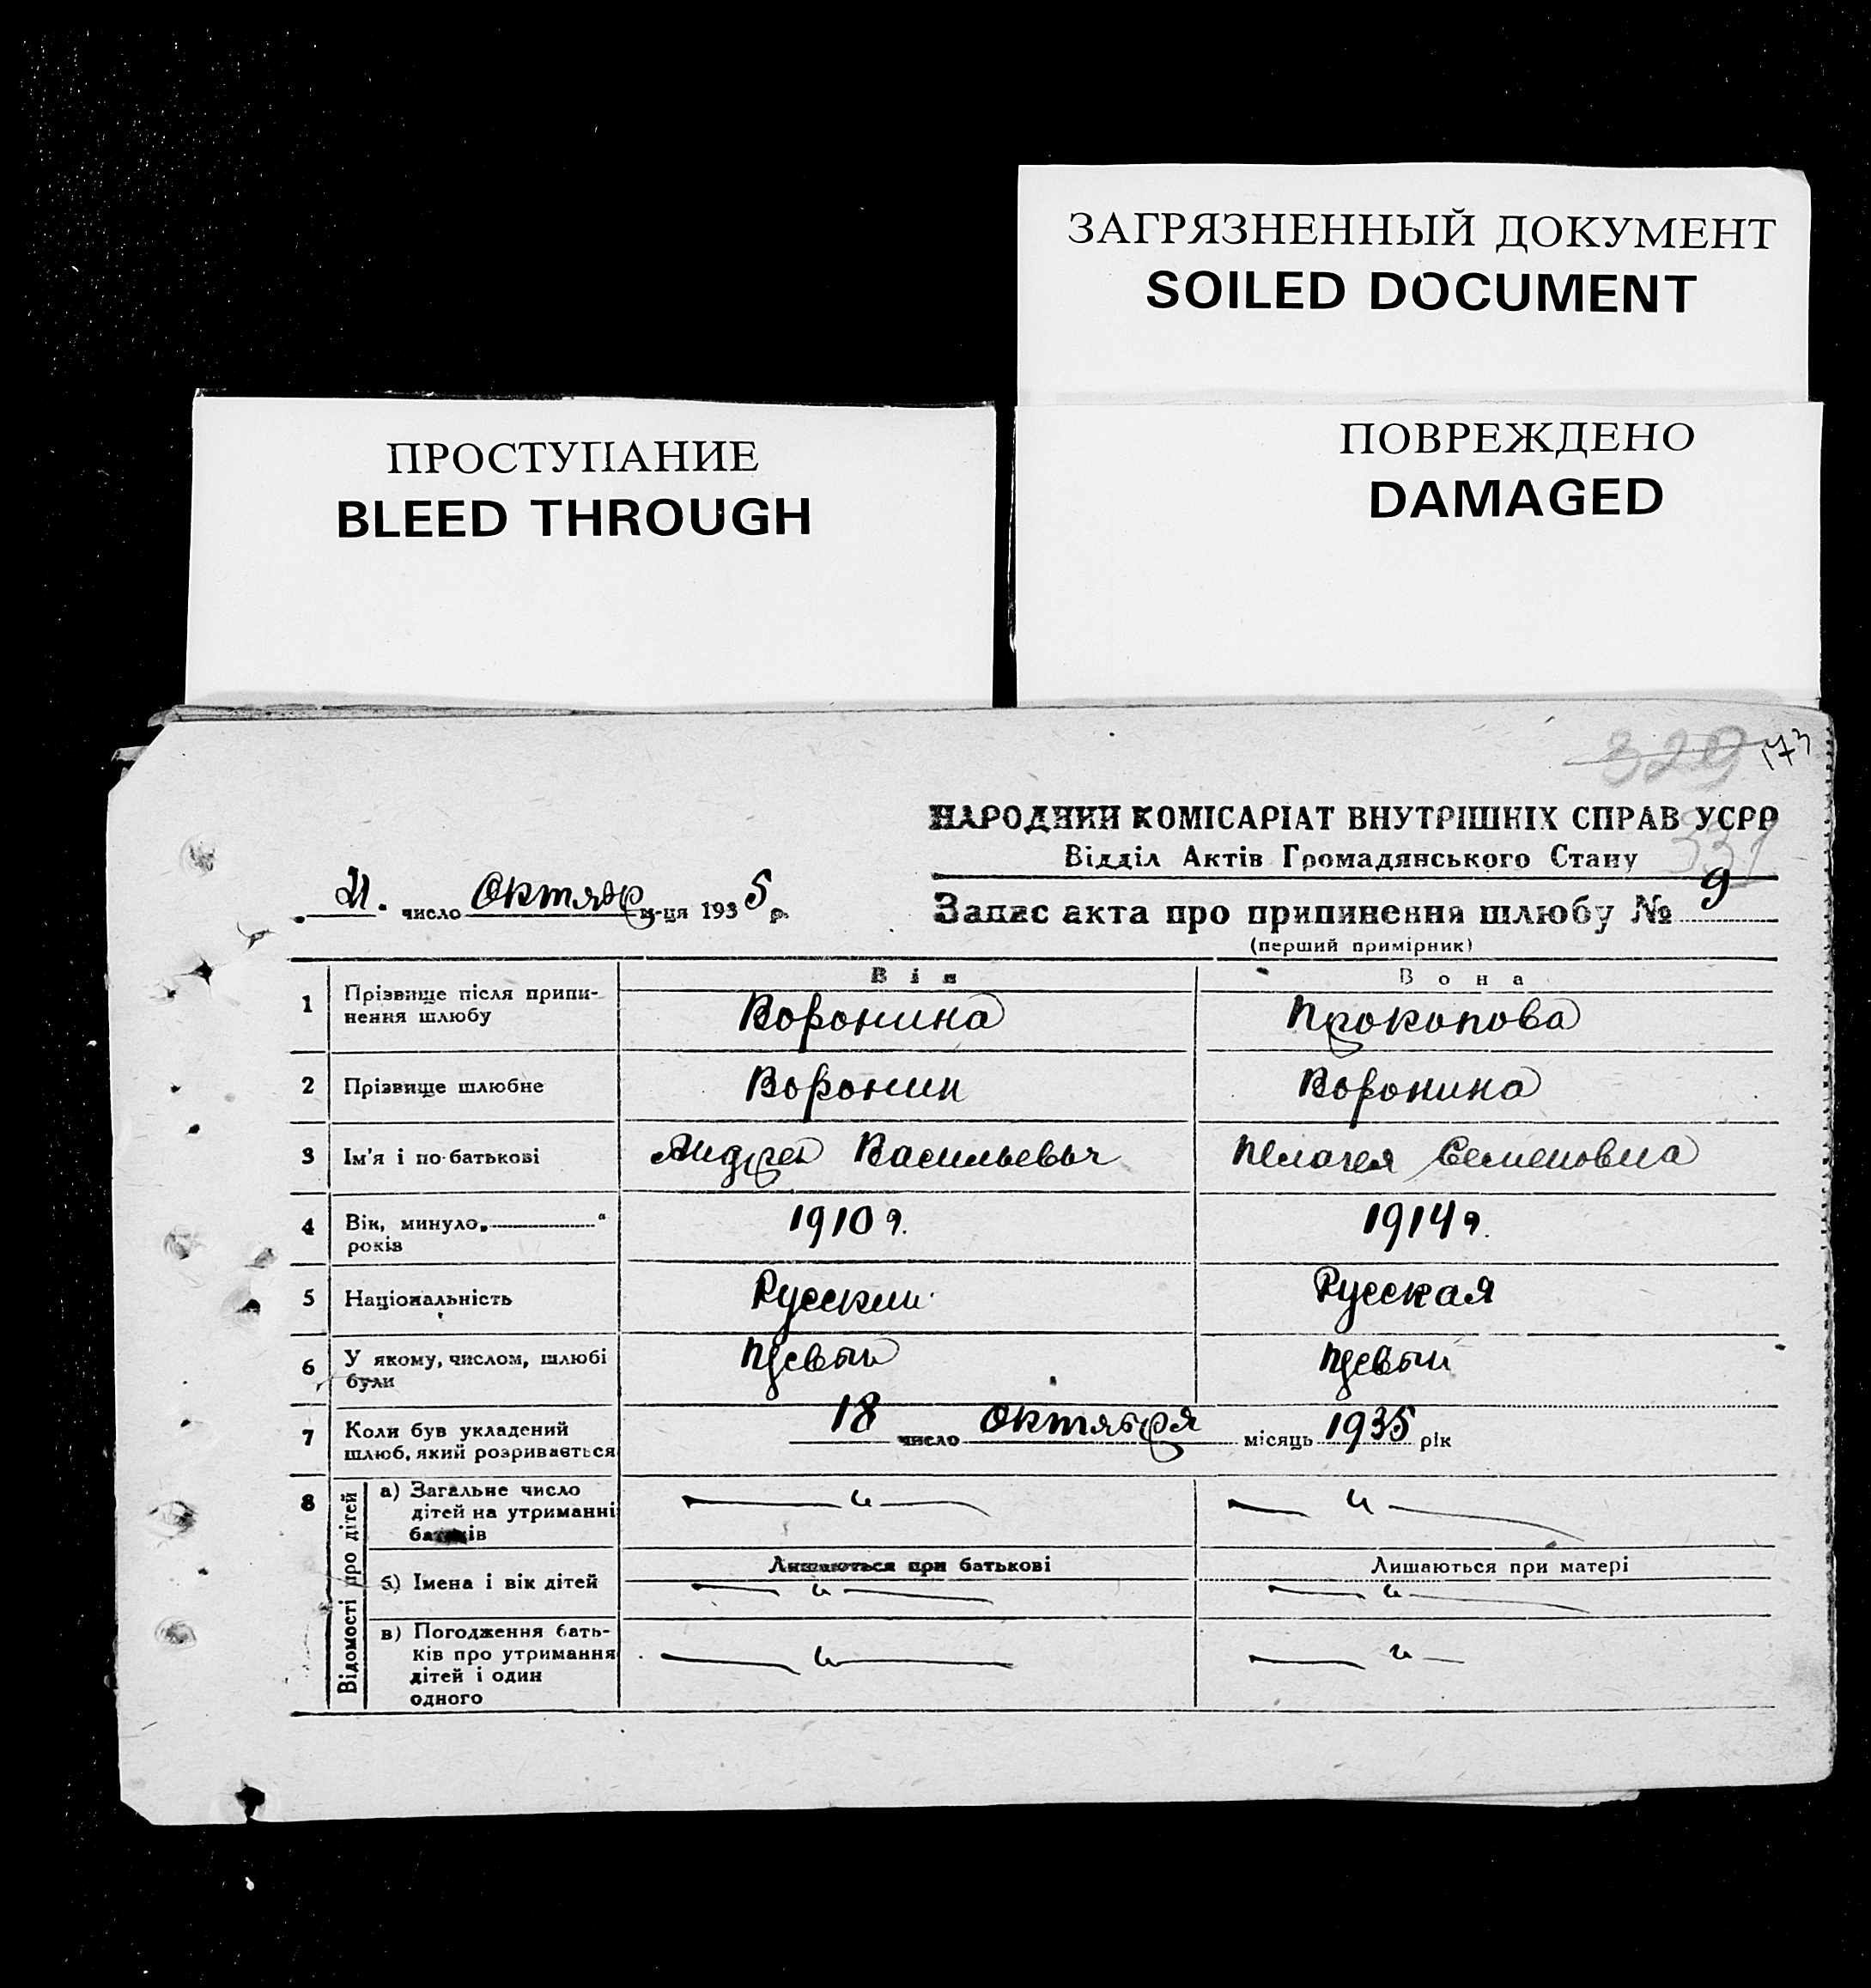 ЗАГРЯЗНЕННЫЙ ДОКУМЕНТ
SOILED DOCUMENT
ПРОСТУПАНИЕ
BLEED THROUGH
ПОВРЕЖДЕНО
DAMAGED
329 173
НАРОДНИЙ КОМІСАРІАТ ВНУТРІШНІХ СПРАВ УСРР
Відділ Актів Громадянського Стану
331
21. число Октябр м-ця 1935 р.
Запис акта про припинення шлюбу № 9
(перший примірник)
Він Вона
1 Прізвище після припи-
нення шлюбу Воронина Прокопова
2 Прізвище шлюбне Воронин Воронина
3 Ім'я і по-батькові Андрей Васильевич Пелагея Семеновна
4 Вік, минуло „ “
років 1910 г. 1914 г.
5 Національність Русский Русская
6 У якому, числом, шлюбі
були Первый Первый
7 Коли був укладений
шлюб, який розривається 18 число Октября місяць 1935 рік
8 Відомості про дітей
а) Загальне число
дітей на утриманні
батьків
Лишаються при батькові Лишаються при матері
б) Імена і вік дітей
в) Погодження бать-
ків про утримання
дітей і один
одного